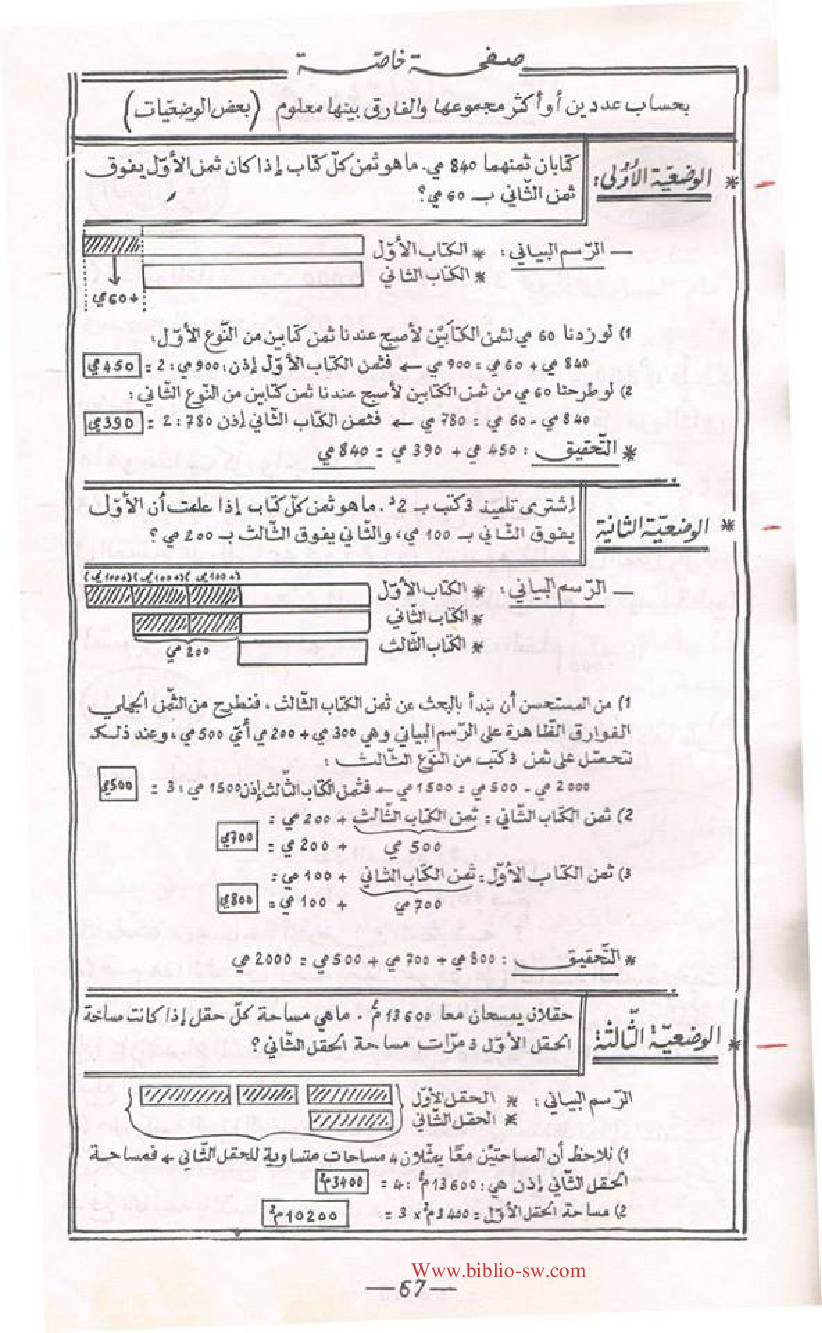 صفحة خاصة
بحساب عددين أو أكثر مجموعها والفارق بينها معلوم (بعض الوضعيات)
* الوضعيّة الأولى:
كتابان ثمنهما 840 مي. ما هو ثمن كلّ كتاب إذا كان ثمن الأوّل يفوق
ثمن الثّاني بـ 60 مي؟
— الرّسم البياني: * الكتاب الأوّل
* الكتاب الثاني
+60 مي
1) لو زدنا 60 مي لثمن الكتابين لأصبح عندنا ثمن كتابين من النّوع الأوّل:
840 مي + 60 مي = 900 مي ← فثمن الكتاب الأوّل إذن: 900 مي : 2 = 450 مي
2) لو طرحنا 60 مي من ثمن الكتابين لأصبح عندنا ثمن كتابين من النّوع الثّاني:
840 مي - 60 مي = 780 مي ← فثمن الكتاب الثّاني إذن 780 : 2 = 390 مي
* التّحقيق: 450 مي + 390 مي = 840 مي
* الوضعيّة الثانية
إشترى تلميذ 3 كتب بـ 2د. ما هو ثمن كلّ كتاب إذا علمت أن الأوّل
يفوق الثّاني بـ 100 مي، والثّاني يفوق الثّالث بـ 200 مي؟
— الرّسم البياني: * الكتاب الأوّل
(+100 مي) (+100 مي) (+100 مي)
* الكتاب الثّاني
* الكتاب الثّالث
200 مي
1) من المستحسن أن نبدأ بالبحث عن ثمن الكتاب الثّالث، فنطرح من الثّمن الجملي
الفوارق الظّاهرة على الرّسم البياني وهي 300 مي + 200 مي أيّ 500 مي، وعند ذلك
نتحصّل على ثمن 3 كتب من النّوع الثّالث:
2000 مي - 500 مي = 1500 مي ← فثمن الكتاب الثّالث إذن 1500 مي : 3 = 500 مي
2) ثمن الكتاب الثّاني: ثمن الكتاب الثّالث + 200 مي =
500 مي + 200 مي = 700 مي
3) ثمن الكتاب الأوّل: ثمن الكتاب الثّاني + 100 مي =
700 مي + 100 مي = 800 مي
* التّحقيق: 800 مي + 700 مي + 500 مي = 2000 مي
* الوضعيّة الثّالثة
حقلان يمسحان معا 13600 م². ما هي مساحة كلّ حقل إذا كانت مساحة
الحقل الأوّل 3 مرّات مساحة الحقل الثّاني؟
الرّسم البياني: * الحقل الأوّل
* الحقل الثّاني
1) نلاحظ أن المساحتين معًا يمثّلان 4 مساحات متساوية للحقل الثّاني ← فمساحة
الحقل الثّاني إذن هي: 13600 م² : 4 = 3400 م²
2) مساحة الحقل الأوّل = 3400 م² × 3 = 10200 م²
Www.biblio-sw.com
—67—